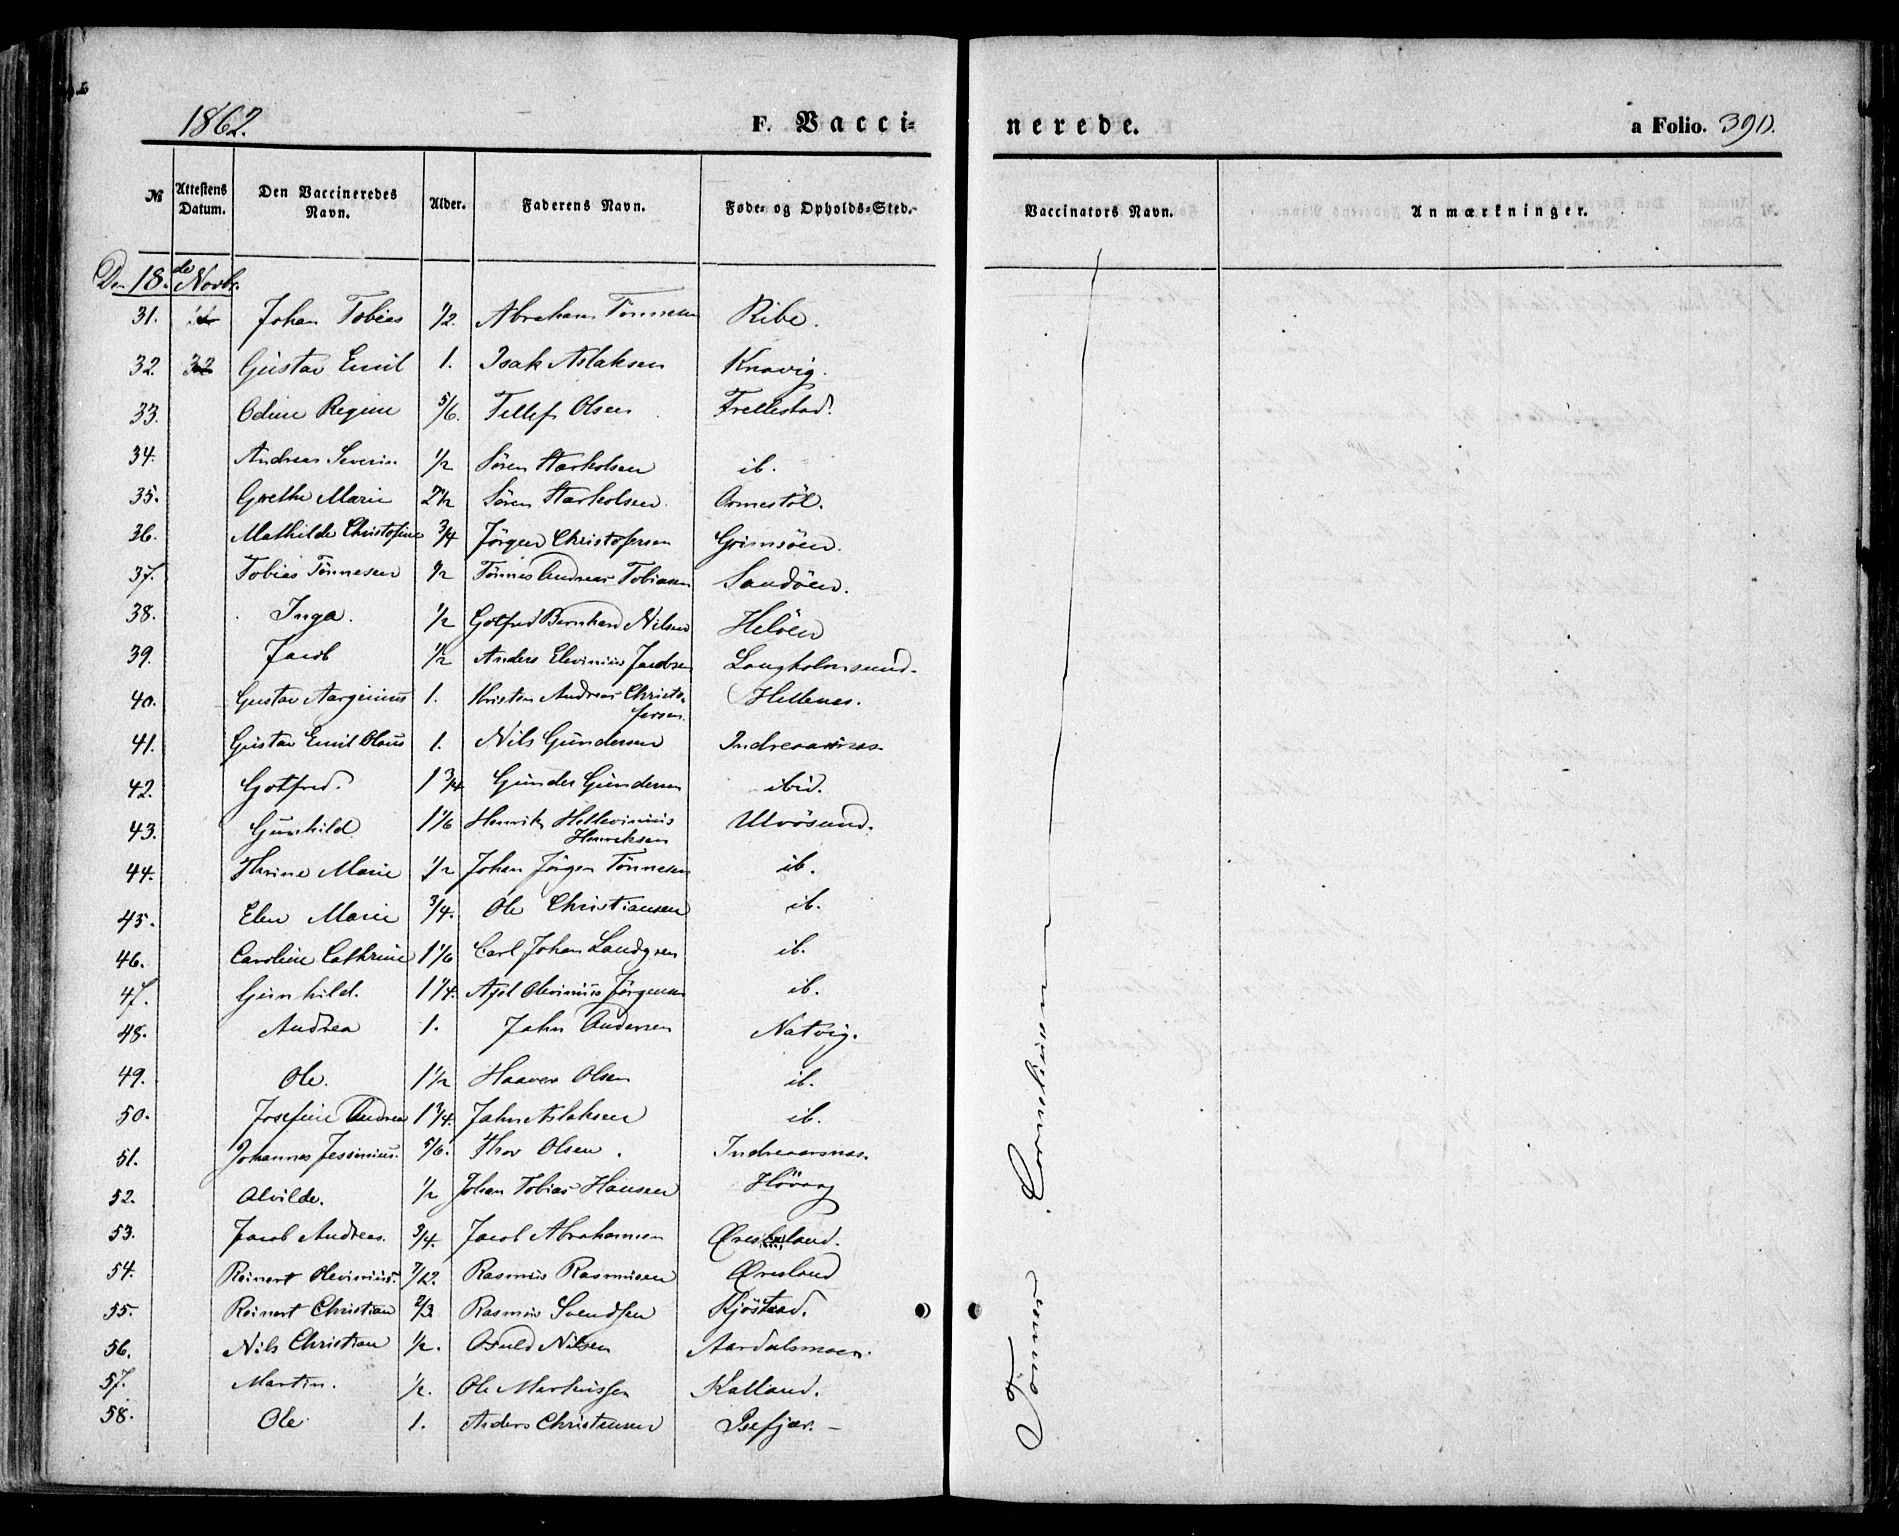 1862.
F. Vacci-
nerede.
a Folio. 390.
№ Attestens Datum. Den Vaccineredes Navn. Alder. Faderens Navn. Føde- og Opholds-Sted.
Vaccinators Navn. Anmærkninger.
Den 18de Novbr.
31. Johan Tobias 1/2. Abraham Tönnesen Ribe.
32. 32 Gustav Emil 1. Isak Aslaksen Knavig.
33. Odine Regine 5/6. Tellef Olsen Trellestad.
34. Andreas Severin 1/2 Sören Starkolsen ib.
35. Grethe Marie 2 1/2 Sören Starkolsen Ormestöl.
36. Mathilde Christofine 3/4 Jörgen Christofersen Grimsöen.
37. Tobias Tönnesen 1/2 Tönnes Andreas Tobiasen Sandöen.
38. Inga. 1/2 Gotfred Bernhard Nilsen Helöen
39. Jacob 1/2 Anders Elevinius Jacobsen Langholmsund.
40. Gustav Aarginius 1. Kristen Andreas Christofersen Hellenes.
41. Gustav Emil Olaus 1. Nils Gundersen Indreaarsnes.
42. Gotfred. 1 3/4 Gunder Gundersen ibid.
43. Gunhild 1 1/6 Henrik Hellevinius Henriksen Ulvösund.
44. Thrine Marie 1/2 Johan Jörgen Tönnesen ib.
45. Elen Marie 3/4. Ole Christiansen ib.
46. Caroline Cathrine 1 1/6 Carl Johan Landgren ib.
47. Gunhild. 1 1/4. Axel Olevinius Jörgensen ib.
48. Andrea 1. Jahn Andersen Natvig.
49. Ole. 1 1/2 Haaver Olsen ib.
50. Josefine Andrea 1 3/4. Jahn Aslaksen ib.
51. Johannes Jessinius. 5/6. Thor Olsen. Indreaarsnes.
52. Alvilde. 1/2 Johan Tobias Hansen Hövaag
53. Jacob Andreas. 3/4. Jacob Abrahamsen Øresland.
54. Reinert Olevinius. 7/12. Rasmus Rasmusen Øresland
55. Reinert Christian 2/3 Rasmus Svendsen Kjöstad.
56. Nils Christian 1/2. Osuld Nilsen Aardalsmoen.
57. Martin. 1/2. Ole Markussen Kalland.
58. Ole 1. Anders Christensen Isefjær.
Tönnes Corneliusen